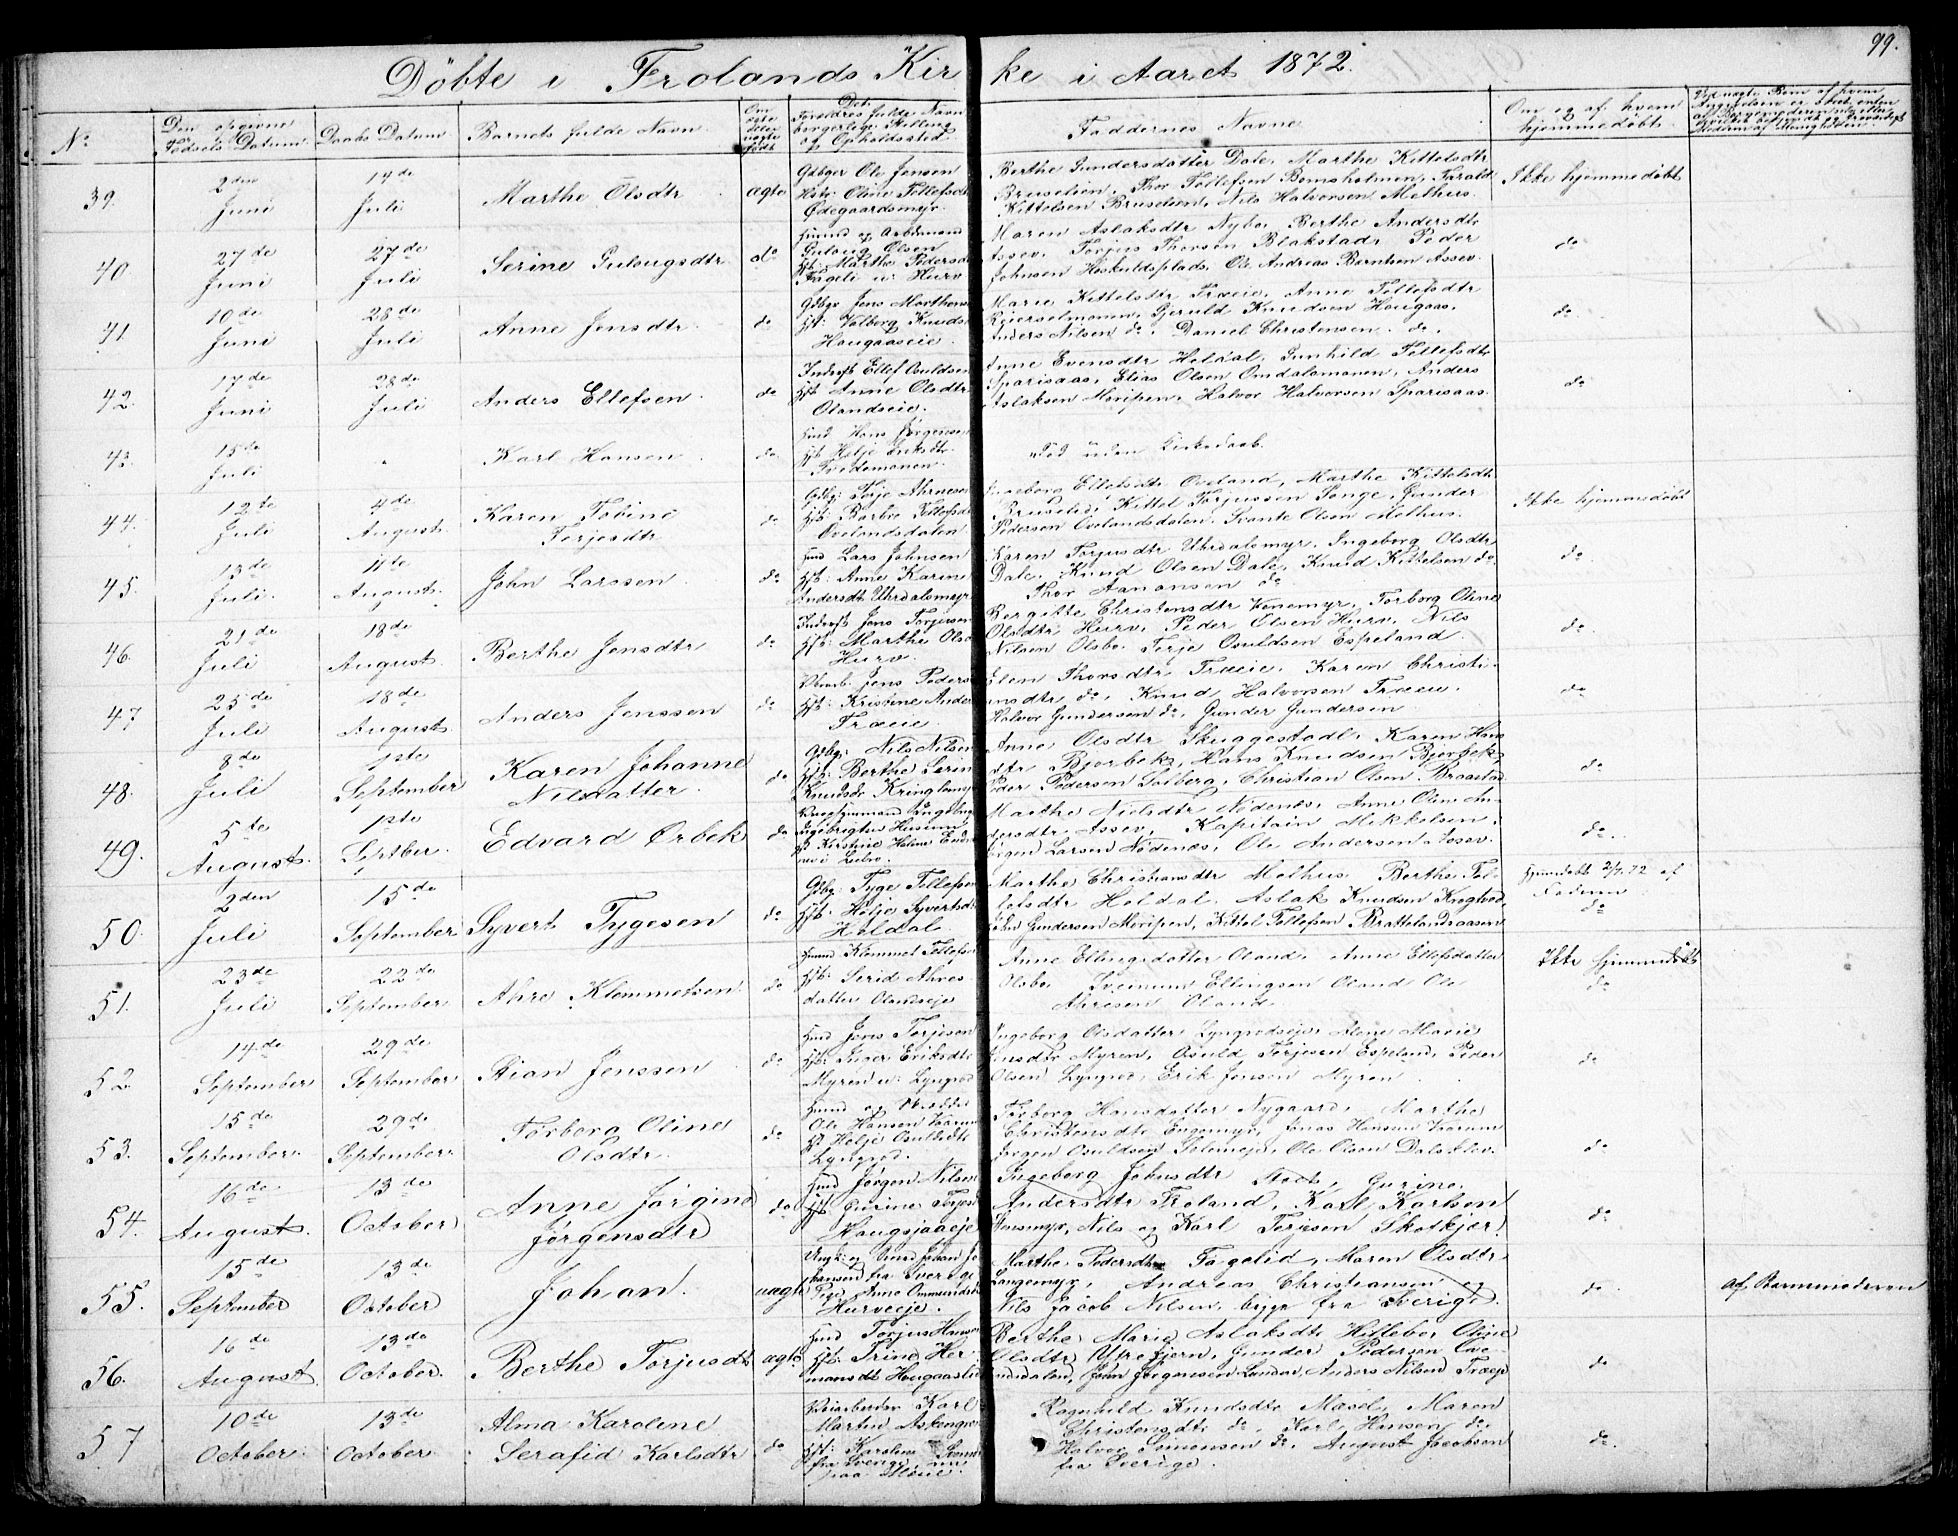 99.
Döbte i Frolands Kirke i Aaret 1872.
No
Den opgivne Fødsels Datum
Daabs Datum
Barnets fulde Navn
Om ægte eller uægte født
Foreldres fulde Navn borgerlige Stilling og Opholdssted
Faddernes Navne
Om og af hvem hjemmedøbt
39. 2den Juni 14de Juli Marthe Olsdtr ægte
Gdbger Ole Jensen
Hstr Oline Tellefsdtr
Ødegaardsmyr.
Berthe Gundersdatter Dale, Marthe Kittelsdtr
Bruselien, Thor Tellefsen Bomsholmen, Tarald
Kittelsen Bruselien, Nils Halvorsen Melhus.
Ikke hjemmedøbt
40. 27de Juni 27de Juli Serine Gulougsdtr do
Huusmd og Arbmand
Guloug Olsen
Marthe Pedersdtr
Fageli u. Hurv
Maren Aslaksdtr Nybo, Berthe Andersdtr
Assev, Torjus Thorsen Blakstad, Peder
Johnsen Hoskuldsplads, Ole Andreas Berntsen Assev.
do
41. 10de Juni 28de Juli Anne Jensdtr do
Gdbgr Jens Morthens
Hst: Valborg Knuds
Hougaaseie.
Marie Kittelsdtr Træeie, Anne Tellefsdtr
Gjeruld Knudsen Hougaas,
Anders Nilsen do, Daniel Christensen do.
do
42. 17de Juni 28de Juli Anders Ellefsen. do
Inderst Ellef Osuldsen
Hst Anne Olsdtr
Olandseie.
Anne Evensdtr Heldal, Gunhild Tellefsdtr
Sparisaas, Elias Olsen Omdalsmonen, Anders
Aslaksen Moripen, Halvor Halvorsen Sparisaas.
do
43. 15de Juli " Karl Hansen do
Hmd Hans Jørgensen
Hst Helje Eriksdtr
Tvedemonen.
Død uden Kirkedaab.
44. 12te Juli 4de August Karen Tobine Terjesdtr do
Gdbg: Terje Ahresen
Hst: Barbro Tellefsdtr
Ovelandsdalen
Ingeborg Ellefsdtr Oveland, Marthe Kittelsdtr
Bruselid, Kittel Torjussen Songe, Gunder
Pedersen Ovelandsdalen, Svante Olsen Melhus.
Ikke hjemmedøbt
45. 13de Juli. 11te August. John Larssen do
Hmd Lars Johnsen
Hst: Anne Karine
Andersdt Uhrdalsmyr
Karen Torjusdtr Uhrdalsmyr, Ingeborg Olsdtr
Dale, Knud Olsen Dale, Knud Kittelsen do,
Thor Aanonsen do
do
46. 21de Juli 18de August. Berthe Jensdtr do
Inderst Jens Torjusen
Hst: Marthe Olsd
Hurv.
Bergitte Christensdtr Venemyr, Torborg Oline
Olsdtr Hurv, Peder Olsen Hurv, Nils
Nilsen Olsbo, Terje Osuldsen Espeland.
do
47 25de Juli 18de August Anders Jenssen do
Jens Peders
Hst: Kristine Ander
Træeie.
Elen Thorsdtr Træeie, Karen Christi-
ansdtr do, Knud Halvorsen Træeie,
Halvor Gundersen do, Gunder Gundersen
do
48. 8de Juli 1ste September Karen Johanne Nilsdatter. do
Gdbg: Nils Nilsen
Hst: Berthe Serine
Knudsdtr Kringlemyr
Anne Olsdtr Skuggestad, Karen Hans
dtr Bjorbek, Hans Knudsen Bjorbek,
Peder Pedersen Solberg, Christian Olsen Braastad
do
49. 5te August. 1ste Septber. Edvard Ørbek do
Kirstine Helene
Marthe Nielsdtr Nødenæs, Anne Oline An-
dersdtr Assev, Kapitain Mikkelsen,
Jørgen Larsen Nødenæs, Ole Andersen Assev.
do.
50. 2den Juli 15de September Syvert Tygesen do
Gdbg: Tyge Tellefsen
Hst: Helje Syvertsdtr
Heldal
Marthe Christiansdtr Melhus Berthe Tel-
lefsdtr Heldal, Aslak Knudsen Krogtved,
John Gundersen Moripen, Kittel Tellefsen Brattelandsaasen
Hjemdøbt 2/7 72 af Faderen
do
51. 23de Juli 22de September Ahre Klemmetsen do
Huusmd Klemmet Tellefsen
Hst: Serid Ahres
datter Olandseje
Anne Ellingsdatter Oland, Anne Ellefsdatter
Olsbo, Sveinum Ellingsen Oland Ole
Ahresen Oland.
Ikke hjemmedøbt
do
52 14de September 29de September Stian Jenssen do
Hmd Jens Terjesen
Hst: Inger Eriksdtr
Myren u. Lyngrod
Ingeborg Olsdatter Lyngrodseje, Alene Marie
Jensdtr Myren, Osuld Terjesen Espeland, Peder
Olsen Lyngrod, Erik Jensen Myren
do
53. 15de September. 29de September. Torborg Oline Olsdtr. do
Ole Hansen
Hst Helje Osuldsdtr
Lyngrod.
Torborg Hansdatter Nygaard, Marthe
Christensdtr Engemyr, Jonas Hansen
Jørgen Osuldsen, Ole Olsen
do
54. 16de August. 13de October Anne Jørgine Jørgensdtr do
Hmd Jørgen Nilsen
Hst Gurine Terjesd
Hougsjaaeje
Ingeborg Johnsdtr Stoch, Gurine
Andersdtr Froland, Karl Karlsen
Nils og Karl Terjesen Skotkjær
do
55. 15de September 13de October Johan. uægte
Ungk: og Johan Jo-
hansen fra Sverige
Pige Anne Ommundsdtr
Hurveeje.
Marthe Pedersdtr Fagelid, Maren Olsdtr
Langemyr, Andreas Christiansen og
Nils Jacob Nilsen, begge fra Sverige.
do
af Barnmoderen
56. 16de August. 13de October. Berthe Torjusdtr ægte
Hmd Torjus Hansen
Hst: Trine Her
mansdt Hougaaslid
Berthe Marie Aslaksdtr Hilleber Oline
Olsdtr, Gunder Pedersen Ove-
landsdalen, John Jørgensen Lundar, Anders Nilsen Træeje
do
57 10de October. 13de October. Alma Karoline Serafid Karlsdtr do
Veiarbeider Karl
Martin
Hst: Karoline
fra Sverige, nu
paa Mæsel.
Ragnhild Knudsdtr Mæsel, Maren
Christensdtr do, Karl Hansen do,
Halvor Simonsen do, August Jacobsen
fra Sverige.
do.